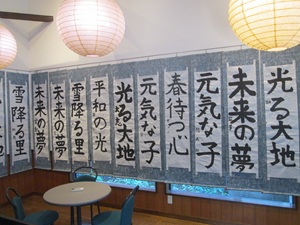 雪降る里
未来の夢
雪降る里
平和の光
光る大地
元気な子
春待つ心
元気な子
未来の夢
光る大地